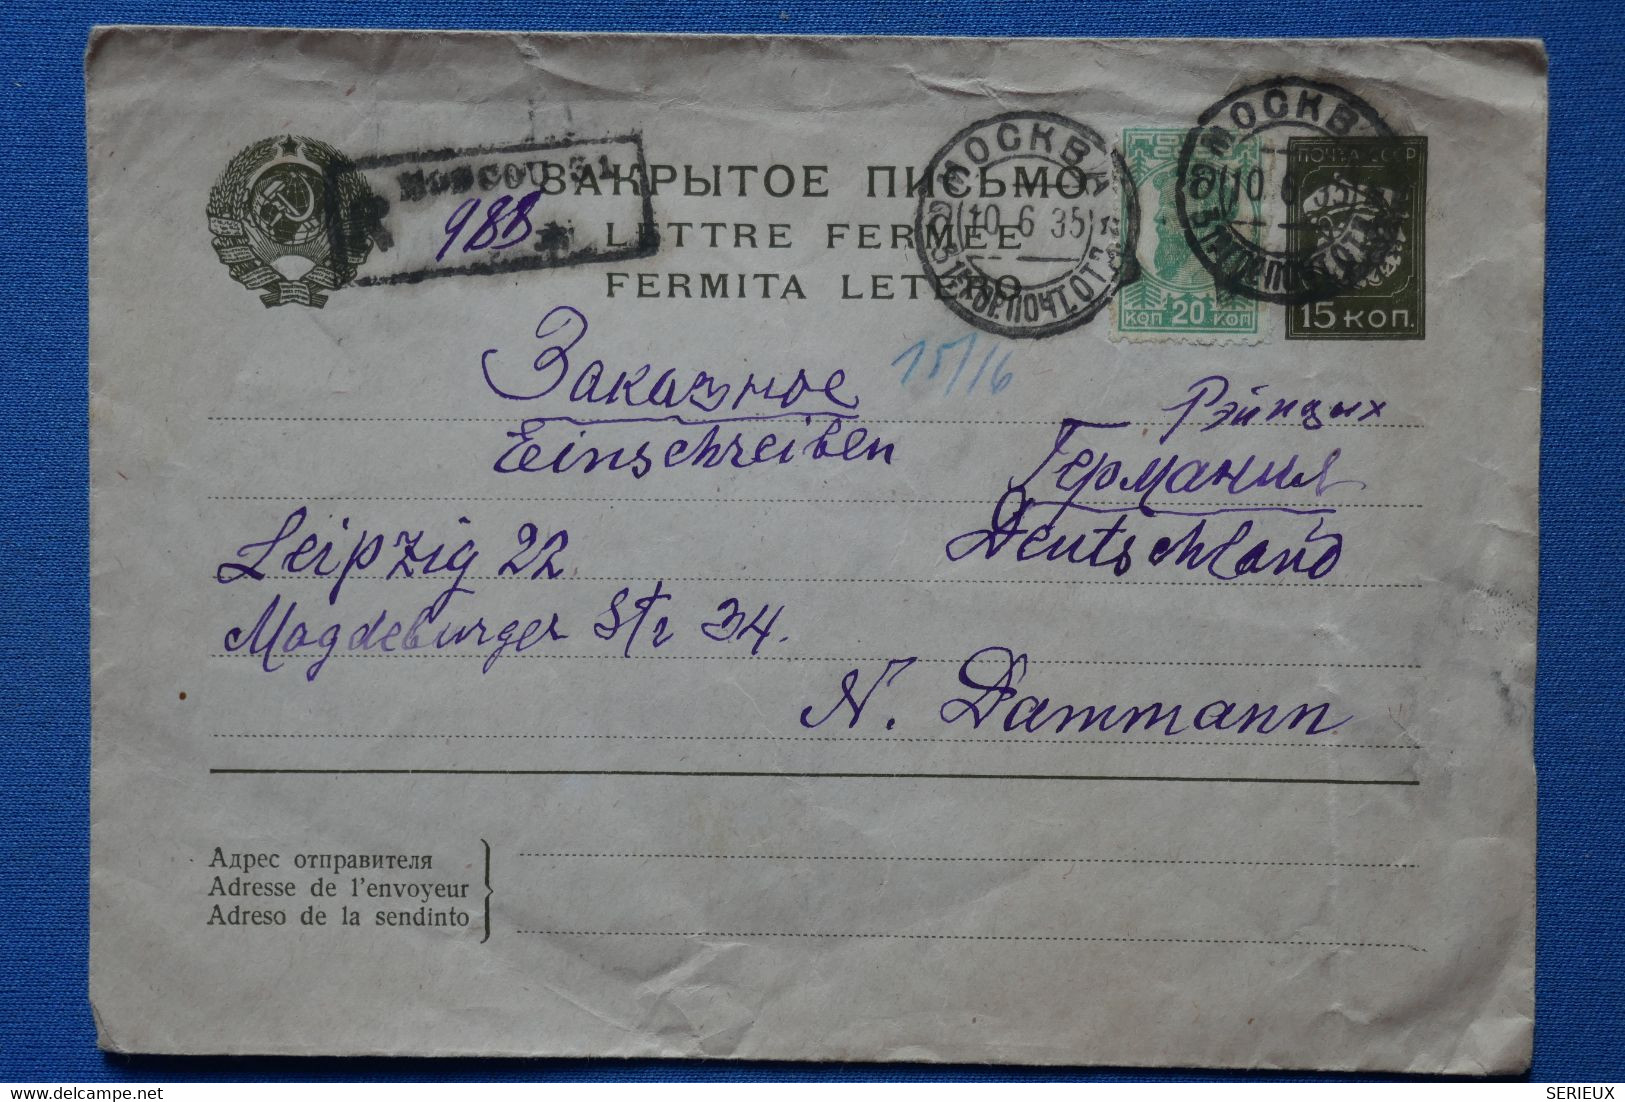 MOSCOU 31
988
ЗАКРЫТОЕ ПИСЬМО
LETTRE FERMÉE
FERMITA LETERO
МОСКВА
10 6 35
КОП 20 КОП
МОСКВА
10 6 35
ПОЧТА СССР
15 КОП.
Заказное
15/16
Einschreiben
Германия
Deutschland
Leipzig 22
Magdeburger Str 34.
N. Dammann
Адрес отправителя
Adresse de l'envoyeur
Adreso de la sendinto
delcampe.net
SERIEUX